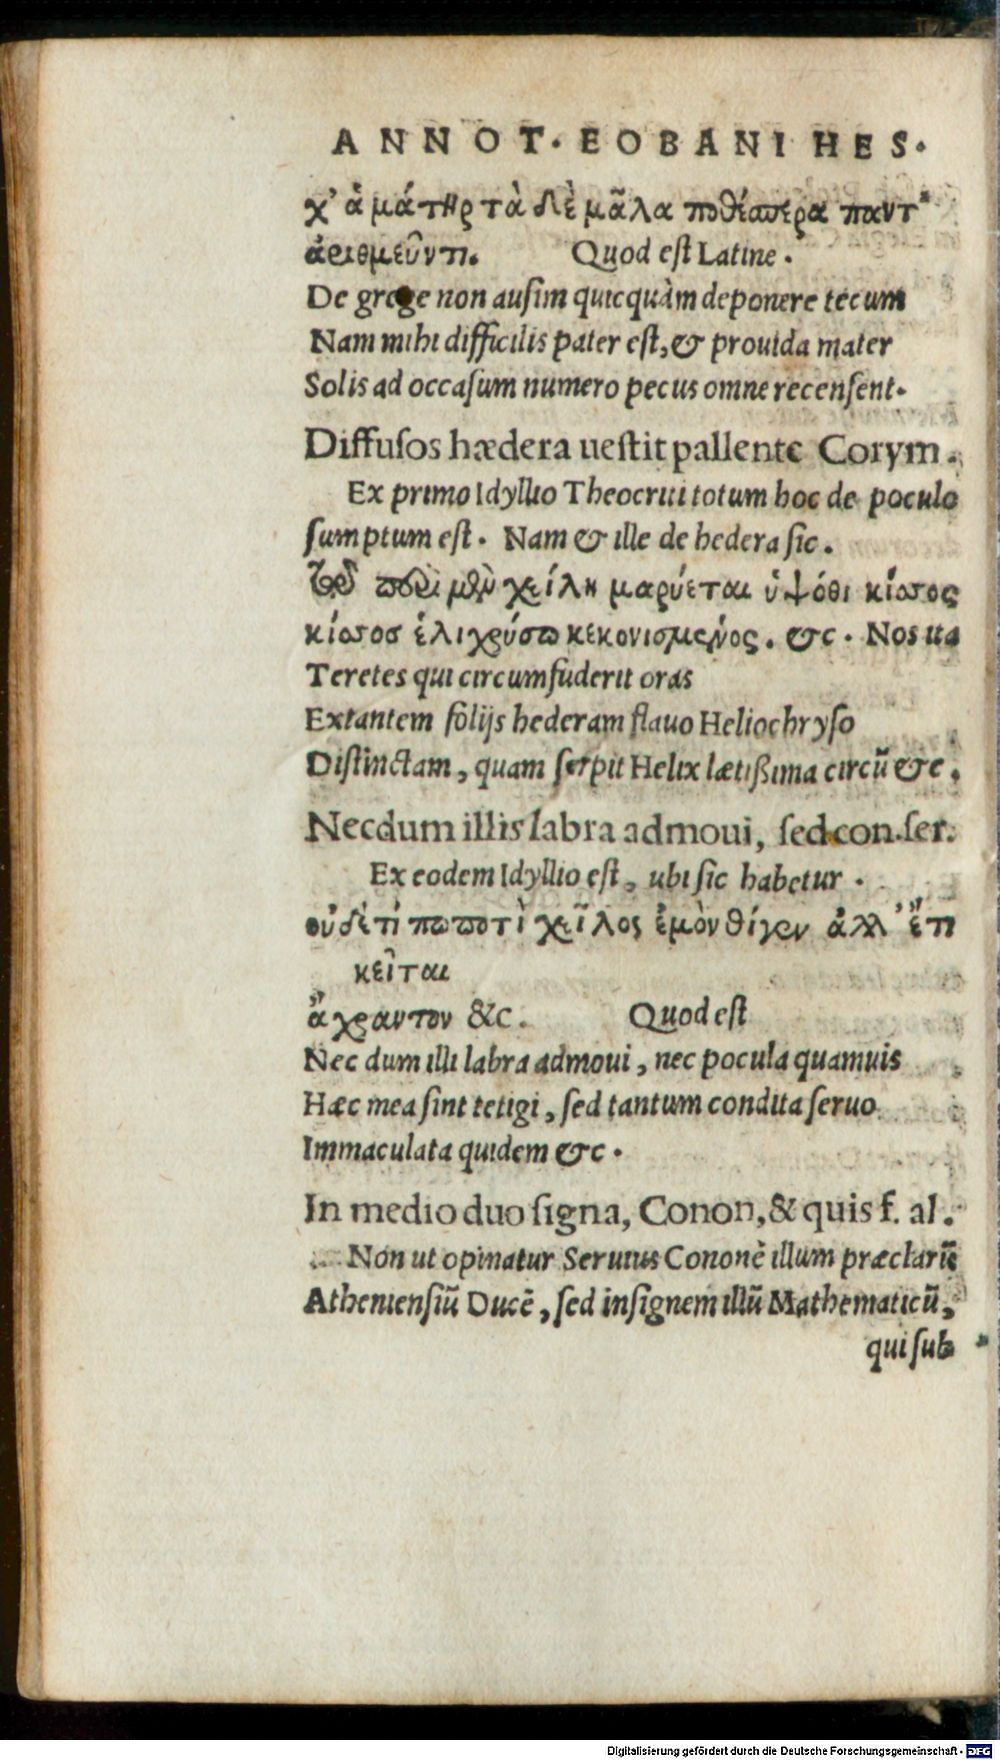 ANNOT. EOBANI HES.
χ' ἁ μάτηρ τὰ δὲ μᾶλα ποθέσπερα παντ'
ἀριθμεῦντι. Quod eſt Latine.
De grege non auſim quicquàm deponere tecum
Nam mihi difficilis pater eſt, & prouida mater
Solis ad occaſum numero pecus omne recenſent.
Diffuſos hædera ueſtit pallente Corym.
Ex primo Idyllio Theocriti totum hoc de poculo
ſumptum eſt. Nam & ille de hedera ſic.
Τῷ ποτὶ μὲν χείλη μαρύεται ὑψόθι κίσσος
κίσσοσ ἑλιχρύσω κεκονισμένος. &c. Nos ita
Teretes qui circumfuderit oras
Extantem folijs hederam flauo Heliochryſo
Diſtinctam, quam ſerpit Helix lætißima circũ &c.
Necdum illis labra admoui, ſed con.ſer.
Ex eodem Idyllio eſt, ubi ſic habetur.
οὐδέτί πω ποτὶ χεῖλος ἐμὸν θίγεν ἀλλ' ἔτι
κεῖται
ἄχραντον &c. Quod eſt
Nec dum illi labra admoui, nec pocula quamuis
Hæc mea ſint tetigi, ſed tantum condita ſeruo
Immaculata quidem &c.
In medio duo ſigna, Conon, & quis f. al.
Non ut opinatur Seruius Cononẽ illum præclarũ
Athenienſiũ Ducẽ, ſed inſignem illũ Mathematicũ,
qui ſub
Digitalisierung gefördert durch die Deutsche Forschungsgemeinschaft - DFG